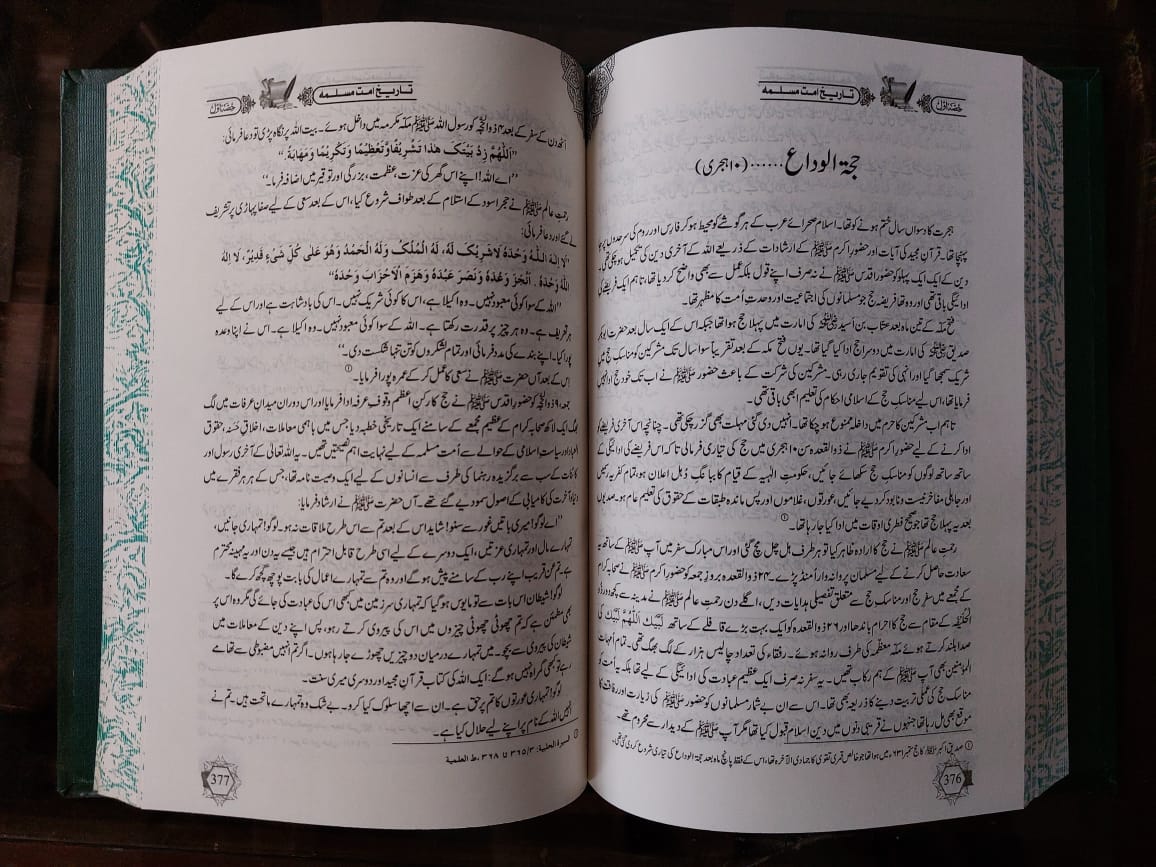 تاریخ امت مسلمہ
حصہ اول
حجۃ الوداع ...... (۱۰ ہجری)
ہجرت کا دسواں سال ختم ہونے کو تھا۔ اسلام صحرائے عرب کے ہر گوشے کو محیط ہو کر فارس اور روم کی سرحدوں پر
پہنچا تھا۔ قرآن مجید کی آیات اور حضور اکرم ﷺ کے ارشادات کے ذریعے اللہ کے آخری دین کی تکمیل ہو چکی تھی۔
دین کے ایک ایک پہلو کو حضور اقدس ﷺ نے نہ صرف اپنے قول بلکہ عمل سے بھی واضح کر دیا تھا، تاہم ایک فریضے کی
ادائیگی باقی تھی اور وہ تھا فریضہ حج جو مسلمانوں کی اجتماعیت اور وحدتِ اُمت کا مظہر تھا۔
فتح مکہ کے تین ماہ بعد عتاب بن اُسید رضی اللہ عنہ کی امارت میں پہلا حج ہوا تھا جبکہ اس کے ایک سال بعد حضرت ابوبکر
صدیق رضی اللہ عنہ کی امارت میں دوسرا حج ادا کیا گیا تھا۔ یوں فتح مکہ کے بعد تقریباً سوا سال تک مشرکین کو مناسک حج میں
شریک سمجھا گیا اور انہی کی تقویم جاری رہی۔ مشرکین کی شرکت کے باعث حضور ﷺ نے اب تک خود حج ادا نہیں
فرمایا تھا، اس لیے مناسک حج کے اسلامی احکام کی تعلیم ابھی باقی تھی۔
تاہم اب مشرکین کا حرم میں داخلہ ممنوع ہو چکا تھا۔ انہیں دی گئی مہلت بھی گزر چکی تھی۔ چنانچہ اس آخری فریضے کو
ادا کرنے کے لیے حضور اکرم ﷺ نے ذوالقعدہ سن ۱۰ ہجری میں حج کی تیاری فرمالی تا کہ اس فریضے کی ادائیگی کے
ساتھ ساتھ لوگوں کو مناسک حج سکھائے جائیں، حکومتِ الٰہیہ کے قیام کا ببانگ دُہل اعلان ہو، تمام کفریہ رسمیں
اور جاہلی مفاخر نیست و نابود کر دیے جائیں، عورتوں، غلاموں اور پس ماندہ طبقات کے حقوق کی تعلیم عام ہو۔ صدیوں
بعد یہ پہلا حج تھا جو صحیح فطری اوقات میں ادا کیا جا رہا تھا۔ ①
رحمتِ عالم ﷺ نے حج کا ارادہ ظاہر کیا تو ہر طرف ہل چل مچ گئی اور اس مبارک سفر میں آپ ﷺ کے ساتھ یہ
سعادت حاصل کرنے کے لیے مسلمان پروانہ وار اُمنڈ پڑے۔ ۲۴ ذوالقعدہ بروز جمعہ کو حضور اکرم ﷺ نے صحابہ کرام
کے مجمعے میں سفر حج اور مناسک حج سے متعلق تفصیلی ہدایات دیں، اگلے دن رحمتِ عالم ﷺ نے مدینہ سے چھ دور ذو
الحلیفہ کے مقام سے حج کا احرام باندھا اور ۲۶ ذوالقعدہ کو ایک بہت بڑے قافلے کے ساتھ لَبَّیْکَ اَللّٰھُمَّ لَبَّیْک کی
صدا بلند کرتے ہوئے مکہ معظمہ کی طرف روانہ ہوئے۔ رفقاء کی تعداد چالیس ہزار کے لگ بھگ تھی۔ تمام امہات
المؤمنین بھی آپ ﷺ کے ہم رکاب تھیں۔ یہ سفر نہ صرف ایک عظیم عبادت کی ادائیگی کے لیے تھا بلکہ یہ اُمت کو
مناسک حج کی عملی تربیت دینے کا ذریعہ بھی تھا۔ اس سے ان بے شمار مسلمانوں کو حضور ﷺ کی زیارت اور رفاقت کا
موقع بھی مل رہا تھا جنہوں نے قریبی دنوں میں دین اسلام قبول کیا تھا مگر آپ ﷺ کے دیدار سے محروم تھے۔
① صدیق اکبر رضی اللہ عنہ کا حج ستمبر ۶۳۱ میں ہوا تھا جو خالص قمری تقویم کا جمادی الآخرہ تھا، اس کے فقط پانچ ماہ بعد حجۃ الوداع کی تیاری شروع کر دی گئی تھی۔
376
تاریخ امت مسلمہ
حصہ اول
آٹھ دن کے سفر کے بعد ۴ ذوالحجہ کو رسول اللہ ﷺ مکہ مکرمہ میں داخل ہوئے۔ بیت اللہ پر نگاہ پڑی تو دعا فرمائی:
”اَللّٰھُمَّ زِدْ بَیْتَکَ ھٰذَا تَشْرِیْفًا وَّتَعْظِیْمًا وَتَکْرِیْمًا وَمَھَابَةً.“
”اے اللہ! اپنے اس گھر کی عزت، عظمت، بزرگی اور توقیر میں اضافہ فرما۔“
رحمتِ عالم ﷺ نے حجر اسود کے استلام کے بعد طواف شروع کیا، اس کے بعد سعی کے لیے صفا پہاڑی پر تشریف
لے گئے اور دعا فرمائی:
”لَا اِلٰـہَ الـلّٰـہُ وَحْدَہٗ لَاشَرِیْکَ لَہٗ، لَہُ الْمُلْکُ وَلَہُ الْحَمْدُ وَھُوَ عَلٰی کُلِّ شَیْءٍ قَدِیْرٌ. لَا اِلٰہَ
اللّٰہُ وَحْدَہٗ . اَنْجَزَ وَعْدَہٗ وَنَصَرَ عَبْدَہٗ وَھَزَمَ الْاَحْزَابَ وَحْدَہٗ“
”اللہ کے سوا کوئی معبود نہیں۔ وہ اکیلا ہے، اس کا کوئی شریک نہیں۔ اس کی بادشاہت ہے اور اس کے لیے
ہر تعریف ہے۔ وہ ہر چیز پر قدرت رکھتا ہے۔ اللہ کے سوا کوئی معبود نہیں۔ وہ اکیلا ہے۔ اس نے اپنا وعدہ
پورا کیا۔ اپنے بندے کی مدد فرمائی اور تمام لشکروں کو تن تنہا شکست دی۔“
اس کے بعد آں حضرت ﷺ نے سعی کا عمل کر کے عمرہ پورا فرمایا۔ ①
جمعہ ۹ ذوالحجہ کو حضور اقدس ﷺ نے حج کا رکنِ اعظم وقوفِ عرفہ ادا فرمایا اور اس دوران میدانِ عرفات میں لگ
بھگ ایک لاکھ صحابہ کرام کے عظیم مجمعے کے سامنے ایک تاریخی خطبہ دیا جس میں باہمی معاملات، اخلاقِ حَسَنہ، حقوق
العباد اور سیاست اسلام کے حوالے سے اُمت مسلمہ کے لیے نہایت اہم نصیحتیں تھیں۔ یہ اللہ تعالیٰ کے آخری رسول اور
کائنات کے سب سے برگزیدہ رہنما کی طرف سے انسانوں کے لیے ایک وصیت نامہ تھا، جس کے ہر ہر فقرے میں
دنیا و آخرت کی کامیابی کے اصول سمو دیے گئے تھے۔ آں حضرت ﷺ نے ارشاد فرمایا:
”اے لوگو! میری باتیں غور سے سنو! شاید اس کے بعد تم سے اس طرح ملاقات نہ ہو۔ لوگو! تمہاری جانیں،
تمہارے مال اور تمہاری عزتیں، ایک دوسرے کے لیے اسی طرح قابلِ احترام ہیں جیسے یہ دن اور یہ مہینہ محترم
ہے۔ تم عن قریب اپنے رب کے سامنے پیش ہو گے اور وہ تم سے تمہارے اعمال کی بابت پوچھ گچھ کرے گا۔
لوگو! شیطان اس بات سے تو مایوس ہو گیا کہ تمہاری سرزمین میں کبھی اس کی عبادت کی جائے گی مگر وہ اس پر
بھی مطمئن ہے کہ تم چھوٹی چھوٹی چیزوں میں اس کی پیروی کرتے رہو، پس اپنے دین کے معاملات میں
شیطان کی پیروی سے بچو۔ میں تمہارے درمیان دو چیزیں چھوڑے جا رہا ہوں۔ اگر تم انہیں مضبوطی سے تھامے
رہے تو کبھی گمراہ نہیں ہو گے: ایک اللہ کی کتاب قرآن مجید اور دوسری میری سنت۔
لوگو! تمہاری عورتوں کا تم پر حق ہے۔ ان سے اچھا سلوک کیا کرو۔ بے شک وہ تمہارے ماتحت ہیں۔ تم نے
انہیں اللہ کے نام پر اپنے لیے حلال کیا ہے۔
① السیرۃ الحلبیۃ: ۳/۳٦٥ تا ۳٦۸، ط العلمیۃ
377